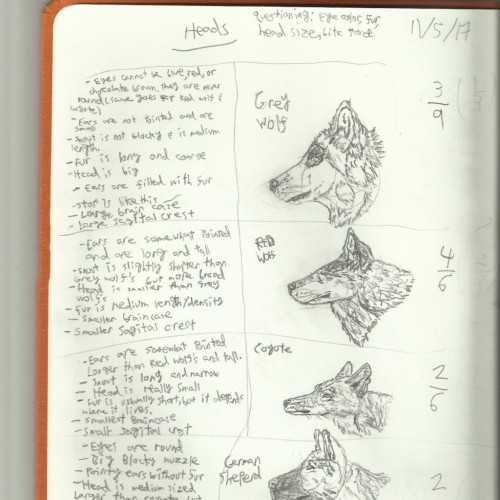 Heads
questioning: Eye color, Fur
head size, bite force
11/5/17
- Eyes cannot be blue, red, or
chocolate brown, they are never
round (same goes for Red wolf &
coyote)
- Ears are not Pointed and are
small
- Snout is not blocky & is medium
length.
- Fur is long and coarse
- Head is big
- Ears are filled with fur
- stop is like this
- Large brain case
- large sagital crest
Grey
Wolf
3/9
- Ears are somewhat Pointed
and are long and tall
- Snout is slightly shorter than
Grey wolf's but more broad
- Head is smaller than Grey
Wolf's
- Fur is medium length/density
- Smaller braincase
- Smaller Sagital crest
Red
Wolf
4/6
- Ears are somewhat Pointed
Longer than Red wolf's and tall.
- Snout is long and narrow
- Head is really small
- Fur is usually short, but it depends
where it lives.
- smallest Braincase
- Small Sagital crest
Coyote
2/6
- Eyes are round
- Big Blocky muzzle
- Pointy ears without fur
- Head is medium sized
Larger than
German
Sheperd
2